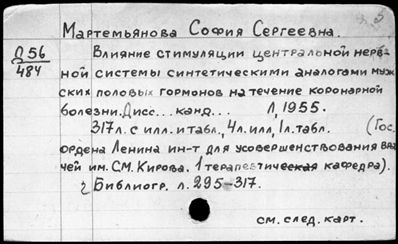 Мартемьянова София Сергеевна.
Д56
484
Влияние стимуляции центральной нерв-
ной системы синтетическими аналогами муж
ских половых гормонов на течение коронарной
болезни. Дисс... канд... Л, 1955.
317л. с илл. и табл., 4л. илл, 1л. табл. (Гос.
ордена Ленина ин-т для усовершенствования вра
чей им. С.М. Кирова. 1 терапевтическая кафедра).
Библиогр. л. 295-317.
см. след. карт.